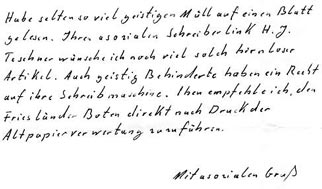 Habe selten so viel geistigen Müll auf einen Blatt
gelesen. Ihren asozialen Schreiberlink H. J.
Teschner wünsche ich noch viel solch hirnloser
Artikel. Auch geistig Behinderte haben ein Recht
auf ihre Schreibmaschine. Ihen empfehle ich, den
Friesländer Boten direkt nach Druck der
Altpapierverwertung zuzuführen.
Mit asozialen Gruß